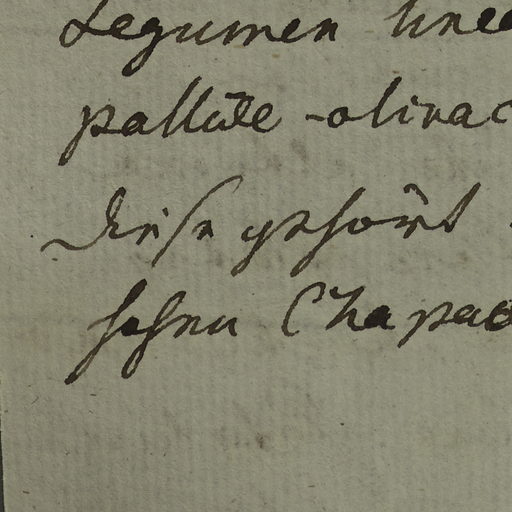 Legumen linee
pallide-olivac
Diese gehört
sehen Chapad